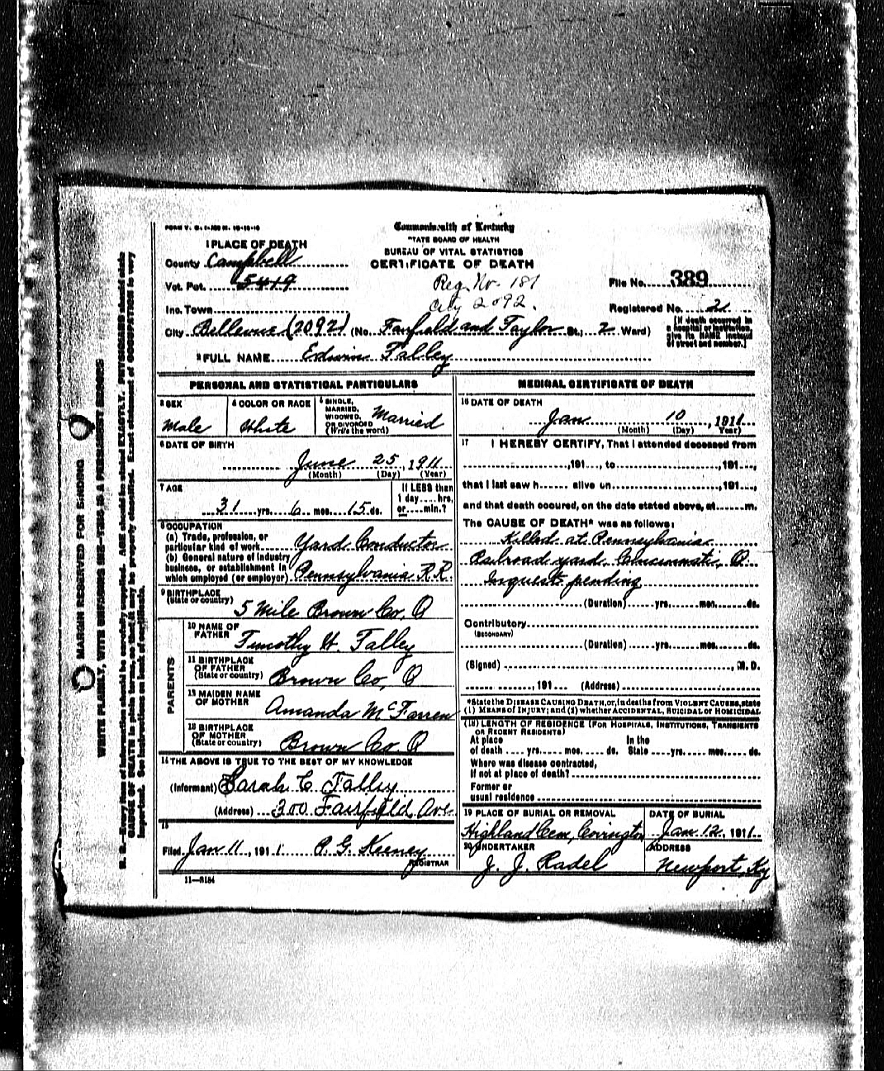 FORM V. S.
Commonwealth of Kentucky
STATE BOARD OF HEALTH
BUREAU OF VITAL STATISTICS
CERTIFICATE OF DEATH
1 PLACE OF DEATH
County Campbell
Vot. Pct. 5419
Reg. No. 181
City 2092.
File No. 389
Inc. Town
Registered No. 21
City Bellevue (2092) (No. Fairfield and Taylor St.; 2 Ward)
[If death occurred in a hospital or institution, give its NAME instead of street and number.]
2 FULL NAME Edwin Talley
PERSONAL AND STATISTICAL PARTICULARS
3 SEX
Male
4 COLOR OR RACE
White
5 SINGLE, MARRIED, WIDOWED, OR DIVORCED (Write the word)
Married
6 DATE OF BIRTH
June 25, 1911
(Month) (Day) (Year)
7 AGE
31 yrs. 6 mos. 15 ds.
If LESS than 1 day.... hrs. or.... min.?
8 OCCUPATION
(a) Trade, profession, or particular kind of work Yard Conductor
(b) General nature of industry business, or establishment in which employed (or employer) Pennsylvania R.R.
9 BIRTHPLACE (State or country)
5 Mile Brown Co, O
PARENTS
10 NAME OF FATHER
Timothy H. Talley
11 BIRTHPLACE OF FATHER (State or country)
Brown Co, O
12 MAIDEN NAME OF MOTHER
Amanda McFarren
13 BIRTHPLACE OF MOTHER (State or country)
Brown Co O
14 THE ABOVE IS TRUE TO THE BEST OF MY KNOWLEDGE
(Informant) Sarah C. Talley
(Address) 300 Fairfield Ave
15
Filed Jan 11, 1911 P. G. Keeney
REGISTRAR
11-5184
MEDICAL CERTIFICATE OF DEATH
16 DATE OF DEATH
Jan 10, 1911
(Month) (Day) (Year)
17 I HEREBY CERTIFY, That I attended deceased from
, 191..., to , 191...,
that I last saw h...... alive on , 191...,
and that death occured, on the date stated above, at m.
The CAUSE OF DEATH* was as follows:
Killed at Pennsylvania
Railroad yard Cincinnati, O
Inquest pending
(Duration) yrs. mos. ds.
Contributory
(SECONDARY)
(Duration) yrs. mos. ds.
(Signed) , M. D.
, 191 (Address)
*State the DISEASE CAUSING DEATH, or, in deaths from VIOLENT CAUSES, state (1) MEANS OF INJURY; and (2) whether ACCIDENTAL, SUICIDAL OR HOMICIDAL
(18) LENGTH OF RESIDENCE (FOR HOSPITALS, INSTITUTIONS, TRANSIENTS OR RECENT RESIDENTS)
At place of death yrs. mos. ds. In the State yrs. mos. ds.
Where was disease contracted, if not at place of death?
Former or usual residence
19 PLACE OF BURIAL OR REMOVAL
Highland Cem, Covington
DATE OF BURIAL
Jan 12, 1911
20 UNDERTAKER
J. J. Radel
ADDRESS
Newport Ky
MARGIN RESERVED FOR BINDING
WRITE PLAINLY, WITH UNFADING INK—THIS IS A PERMANENT RECORD
N. B.—Every item of information should be carefully supplied. AGE should be stated EXACTLY. PHYSICIANS should state
CAUSE OF DEATH in plain terms, so that it may be properly classified. Exact statement of OCCUPATION is very
important. See instructions on back of certificate.